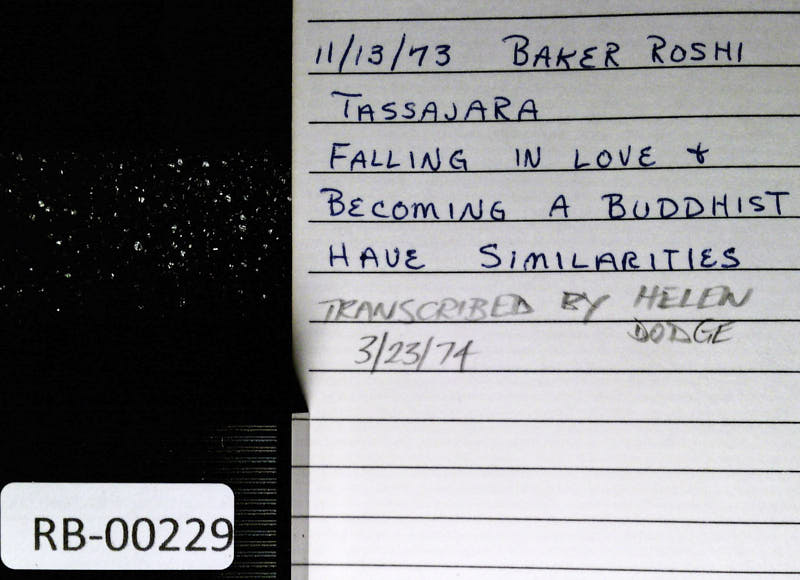 11/13/73 BAKER ROSHI
TASSAJARA
FALLING IN LOVE &
BECOMING A BUDDHIST
HAVE SIMILARITIES
TRANSCRIBED BY HELEN
DODGE
3/23/74
RB-00229